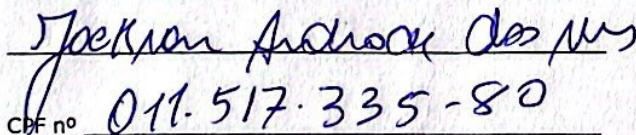 Jackson Andrade dos
CPF nº 011.517.335-80